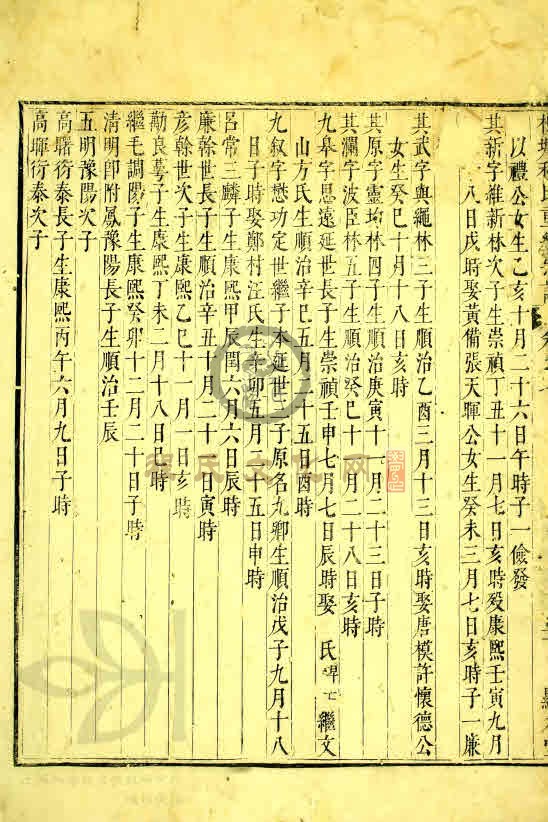 以禮公女生乙亥十月二十六日午時子一儉發
其新字維新林次子生崇禎丁丑十一月七日亥時歿康熙壬寅九月
八日戌時娶黃備張天暉公女生癸未三月七日亥時子一廉
其武字與繩林三子生順治乙酉三月十三日亥時娶唐模許懷德公
女生癸巳十月十八日亥時
其原字靈均林四子生順治庚寅十一月二十三日子時
其瀾字波臣林五子生順治癸巳十一月二十八日亥時
九皋字思遠延世長子生崇禎壬申七月七日辰時娶 氏 繼文
山方氏生順治辛巳五月二十五日酉時
九叙字懋功定世繼子本延世三子原名九卿生順治戊子九月十八
日子時娶鄭村汪氏生辛卯五月二十五日申時
呂常三麟子生康熙甲辰閏六月六日辰時
廉榦世長子生順治辛丑十月二十一日寅時
彥榦世次子生康熙乙巳十一月一日亥時
勛良蕚子生康熙丁未二月十八日巳時
繼毛調陽子生康熙癸卯十二月二十日子時
清明卽附鳳豫陽長子生順治壬辰
五明豫陽次子
高曙衍泰長子生康熙丙午六月九日子時
高暉衍泰次子